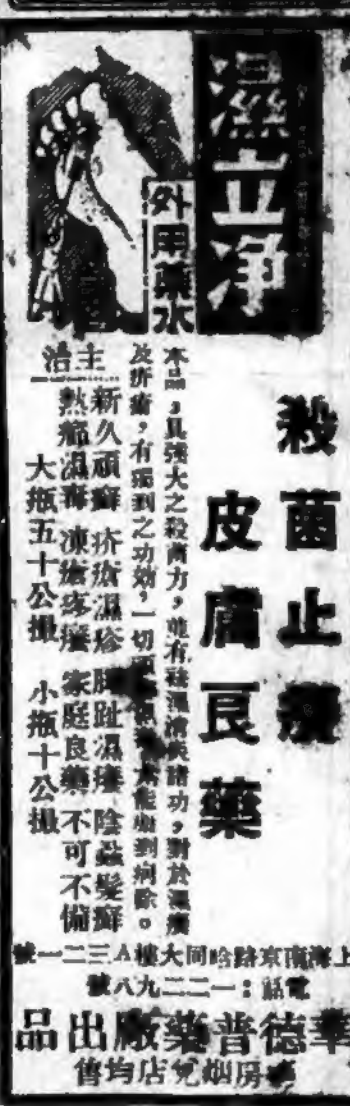 濕立净
外用藥水
殺菌止癢
皮膚良藥
本品，具強大之殺菌力，並有祛濕消炎諸功，對於濕癢
及疥瘡，有獨到之功効，一切
主治
新久頑癬 疥瘡濕疹 脚趾濕癢 陰蝨髮癬
熱痱濕毒 凍瘡疼癢 家庭良藥 不可不備
大瓶五十公撮 小瓶十公撮
上海南京路哈同大樓A三二一號
電話：一二二九八號
華德普藥廠出品
房烟兌店均售